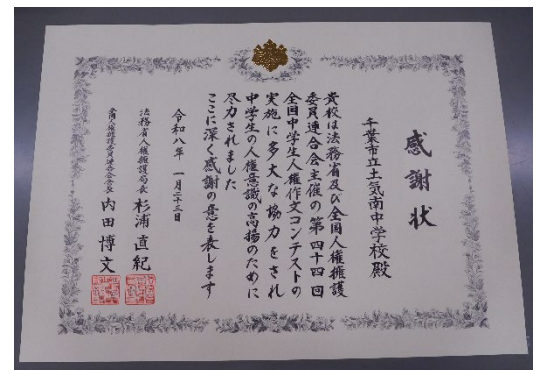 感謝状
千葉市立土気南中学校殿
貴校は法務省及び全国人権擁護
委員連合会主催の第四十四回
全国中学生人権作文コンテストの
実施に多大な協力をされ
中学生の人権意識の高揚のために
尽力されました
ここに深く感謝の意を表します
令和八年 一月二十三日
法務省人権擁護局長 杉浦直紀
全国人権擁護委員連合会会長 内田博文